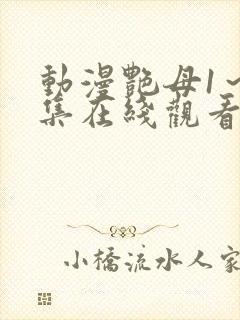 動漫艷母1～
集在綫觀看
小橋流水人家